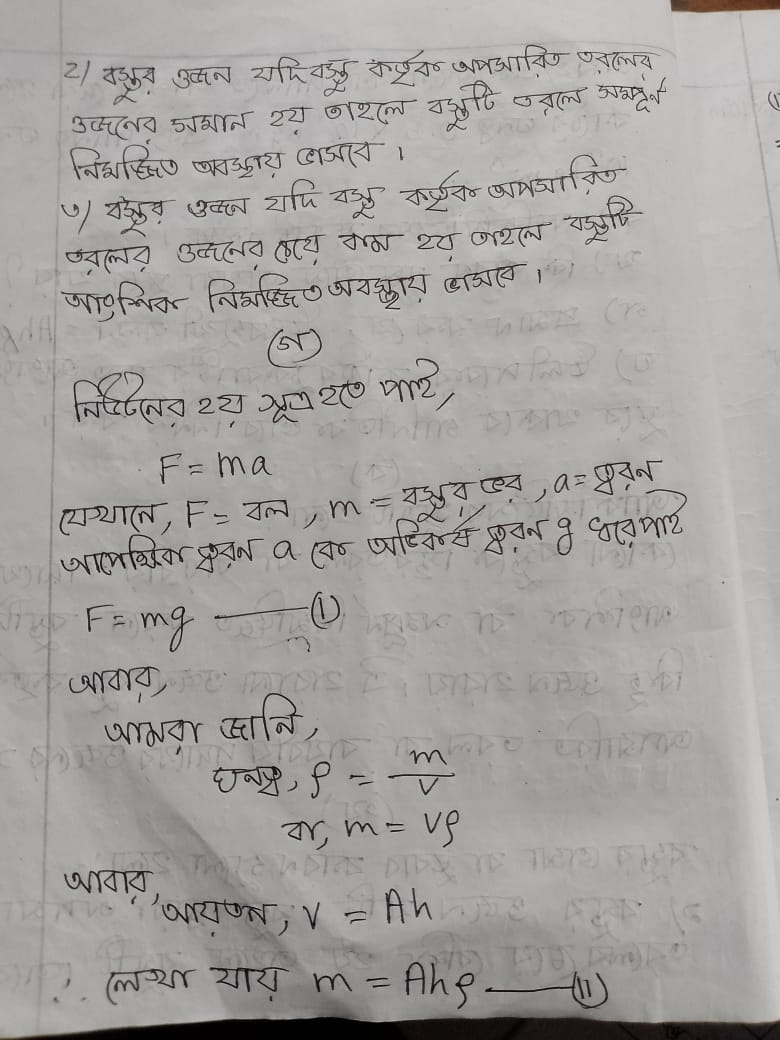 ২) বস্তুর ওজন যদি বস্তু কর্তৃক অপসারিত তরলের
ওজনের সমান হয় তাহলে বস্তুটি তরলে সম্পূর্ণ
নিমজ্জিত অবস্থায় ভাসবে।
৩) বস্তুর ওজন যদি বস্তু কর্তৃক অপসারিত
তরলের ওজনের চেয়ে কম হয় তাহলে বস্তুটি
আংশিক নিমজ্জিত অবস্থায় ভাসবে।
(গ)
নিউটনের ২য় সূত্র হতে পাই,
F = ma
যেখানে, F = বল, m = বস্তুর ভর, a = ত্বরন
আপেক্ষিক ত্বরন a কে অভিকর্ষ ত্বরন g ধরে পাই
F = mg —— (I)
আবার,
আমরা জানি,
ঘনত্ব, ρ = m/v
বা, m = Vρ
আবার,
আয়তন, V = Ah
∴ লেখা যায় m = Ahρ —— (II)